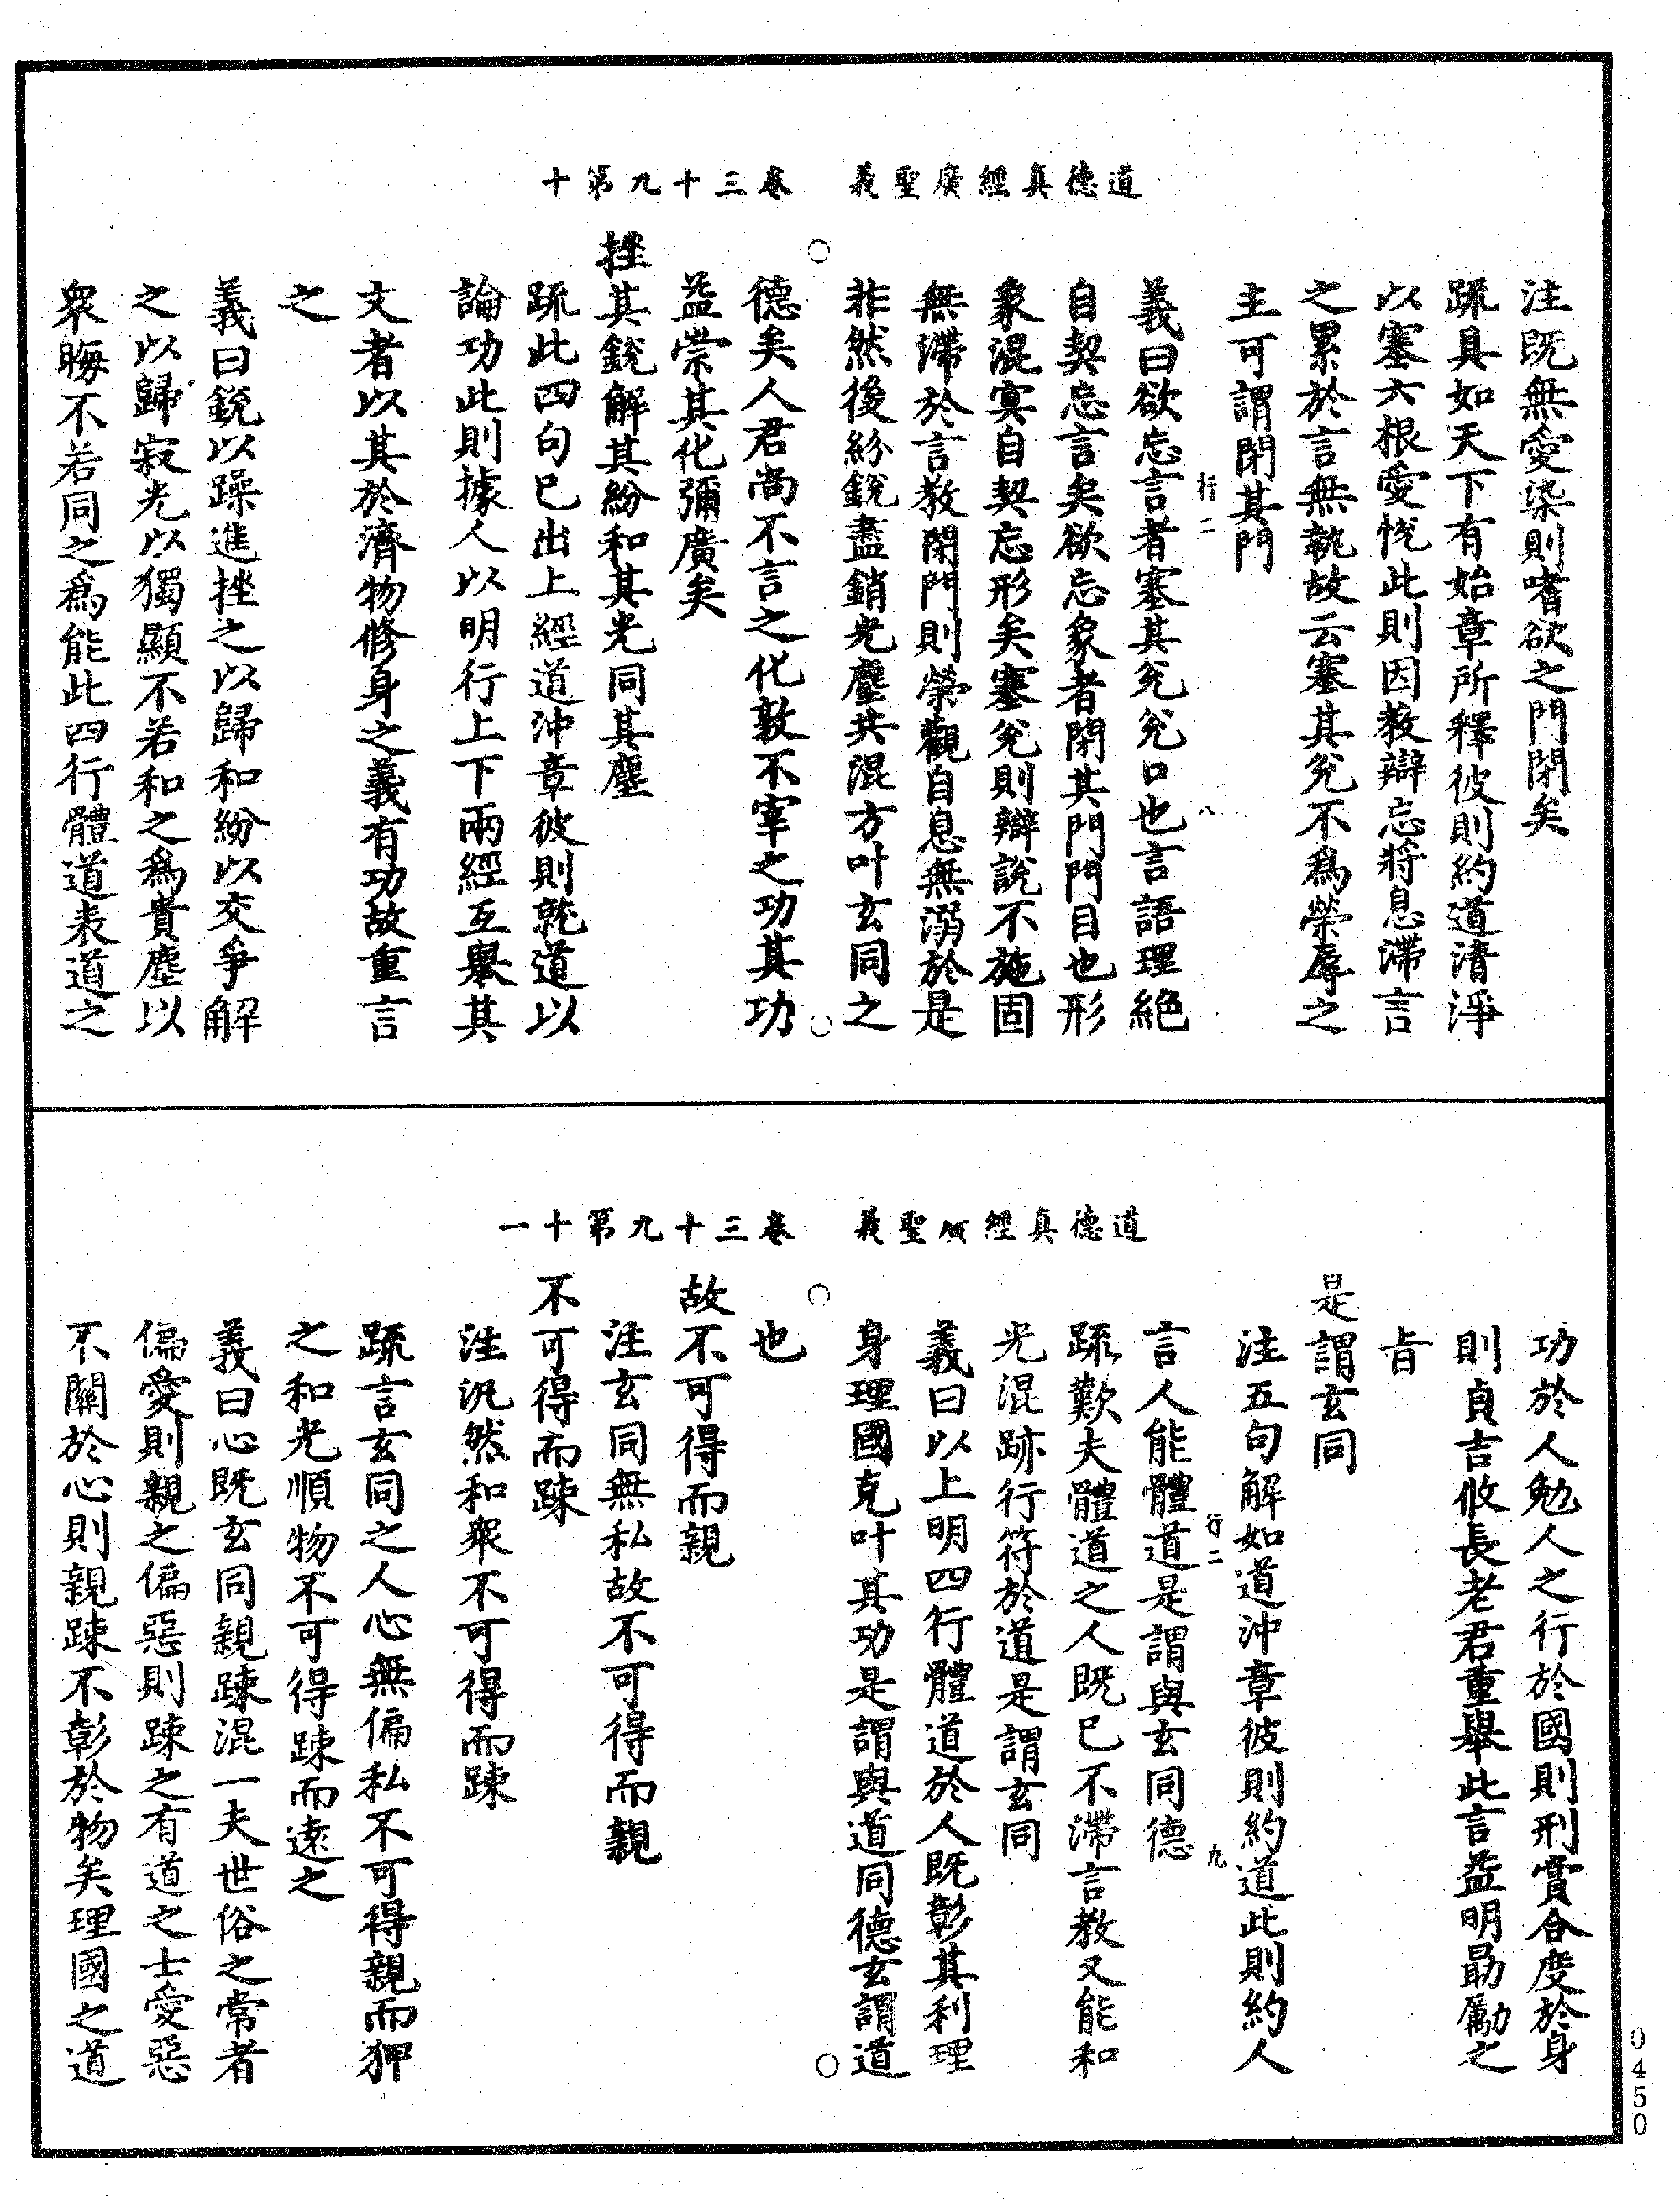 道德真經廣聖義　卷三十九第十
注既無愛染則嗜欲之門閉矣
疏具如天下有始章所釋彼則約道清淨
以塞六根愛悅此則因教辯忘將息滯言
之累於言無執故云塞其兌不為榮辱之
主可謂閉其門
行二　八
義曰欲忘言者塞其兌兌口也言語理絕
自契忘言矣欲忘象者閉其門門目也形
象混寞自契忘形矣塞兌則辯說不施固
無滯於言教閉門則榮觀自息無溺於是
非然後紛銳盡銷光塵共混方叶玄同之
德矣人君尚不言之化敦不宰之功其功
益崇其化彌廣矣
挫其銳解其紛和其光同其塵
疏此四句已出上經道沖章彼則就道以
論功此則據人以明行上下兩經互舉其
文者以其於濟物修身之義有功故重言
之
義曰銳以躁進挫之以歸和紛以交爭解
之以歸寂光以獨顯不若和之為貴塵以
眾晦不若同之為能此四行體道表道之
道德真經廣聖義　卷三十九第十一
功於人勉人之行於國則刑賞合度於身
則貞吉攸長老君重舉此言益明勗勵之
旨
是謂玄同
注五句解如道沖章彼則約道此則約人
言人能體道是謂與玄同德
行二　九
疏歎夫體道之人既已不滯言教又能和
光混跡行符於道是謂玄同
義曰以上明四行體道於人既彰其利理
身理國克叶其功是謂與道同德玄謂道
也
故不可得而親
注玄同無私故不可得而親
不可得而踈
注汎然和眾不可得而踈
疏言玄同之人心無偏私不可得親而狎
之和光順物不可得踈而遠之
義曰心既玄同親踈混一夫世俗之常者
偏愛則親之偏惡則踈之有道之士愛惡
不關於心則親踈不彰於物矣理國之道
0450